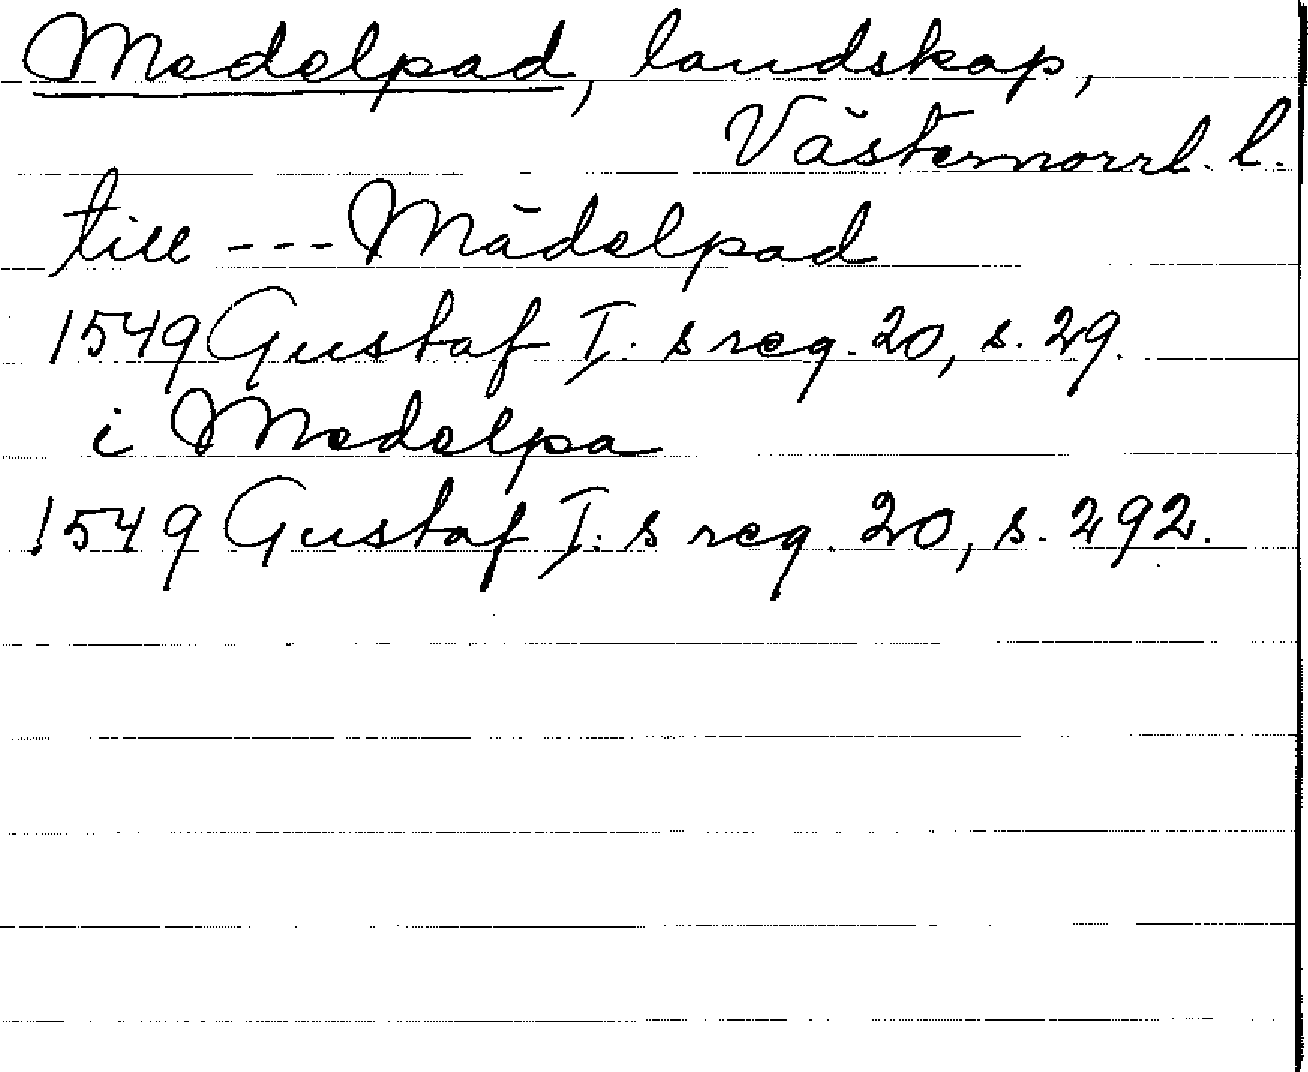 Medelpad, landskap,
Västernorrl. l.
till --- Mädelpad
1549 Gustaf I. s reg. 20, s. 29.
i Medelpa
1549 Gustaf I. s reg. 20, s. 292.